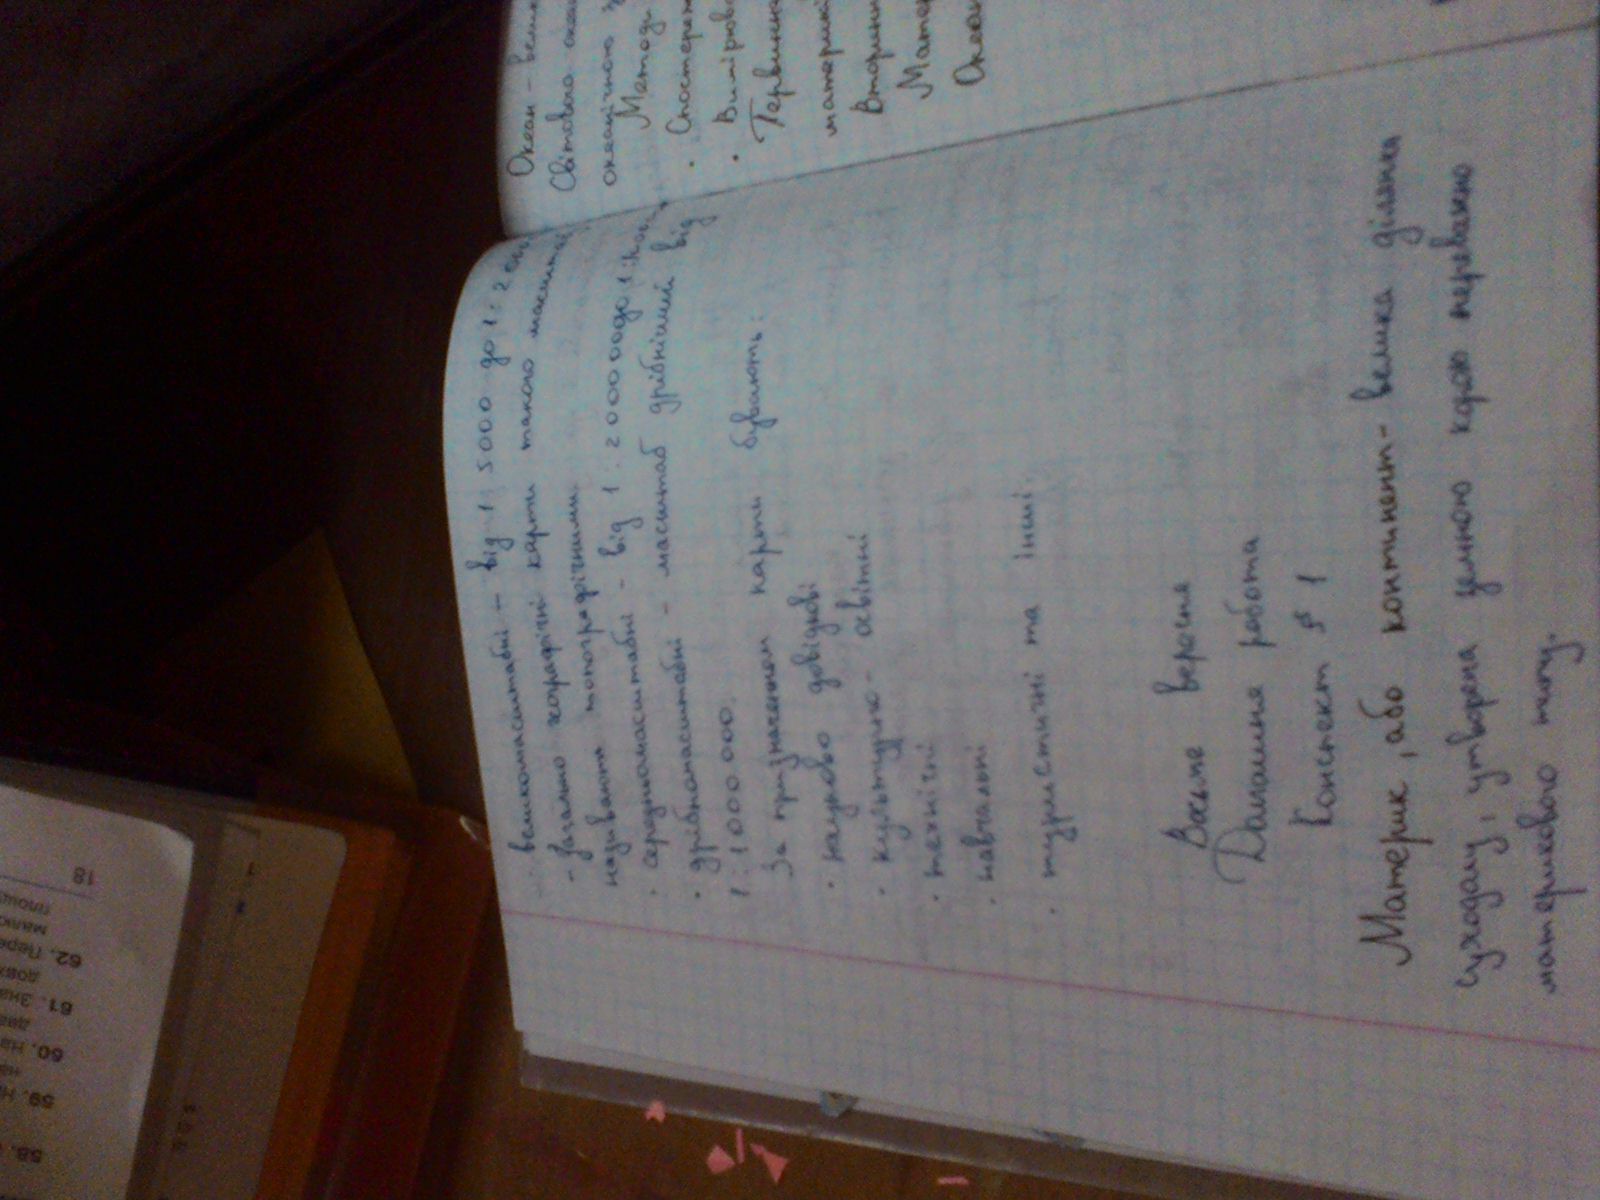 великомасштабні – від 1: 5000 до 1: 200
- загально географічні карти такого масштабу
називають топографічними.
· середньомасштабні - від 1: 200 000 до 1:
· дрібномасштабні - масштаб дрібніший від
1: 1 000 000.
За призначенням карти бувають:
· науково довідкові
· культурно - освітні
· технічні
· навчальні
· туристичні та інші.
Восьме вересня
Домашня робота
Конспект § 1
Материк, або континент- велика ділянка
суходолу, утворена земною корою переважно
материкового типу.
Океан - велик
Світового океа
океанічного з
Методи
· Спостереж
· Вимірюва
Первинна
материкі
Вторинн
Матер
Океан
18
площ
малю
62. Пере
довж
61. Зна
два
60. На
59. Н
58.